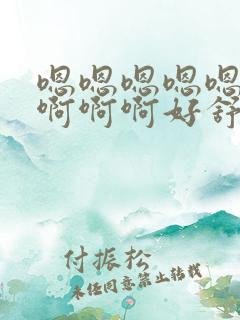 嗯嗯嗯嗯嗯
啊啊啊好舒
付振松
未经同意禁止转载